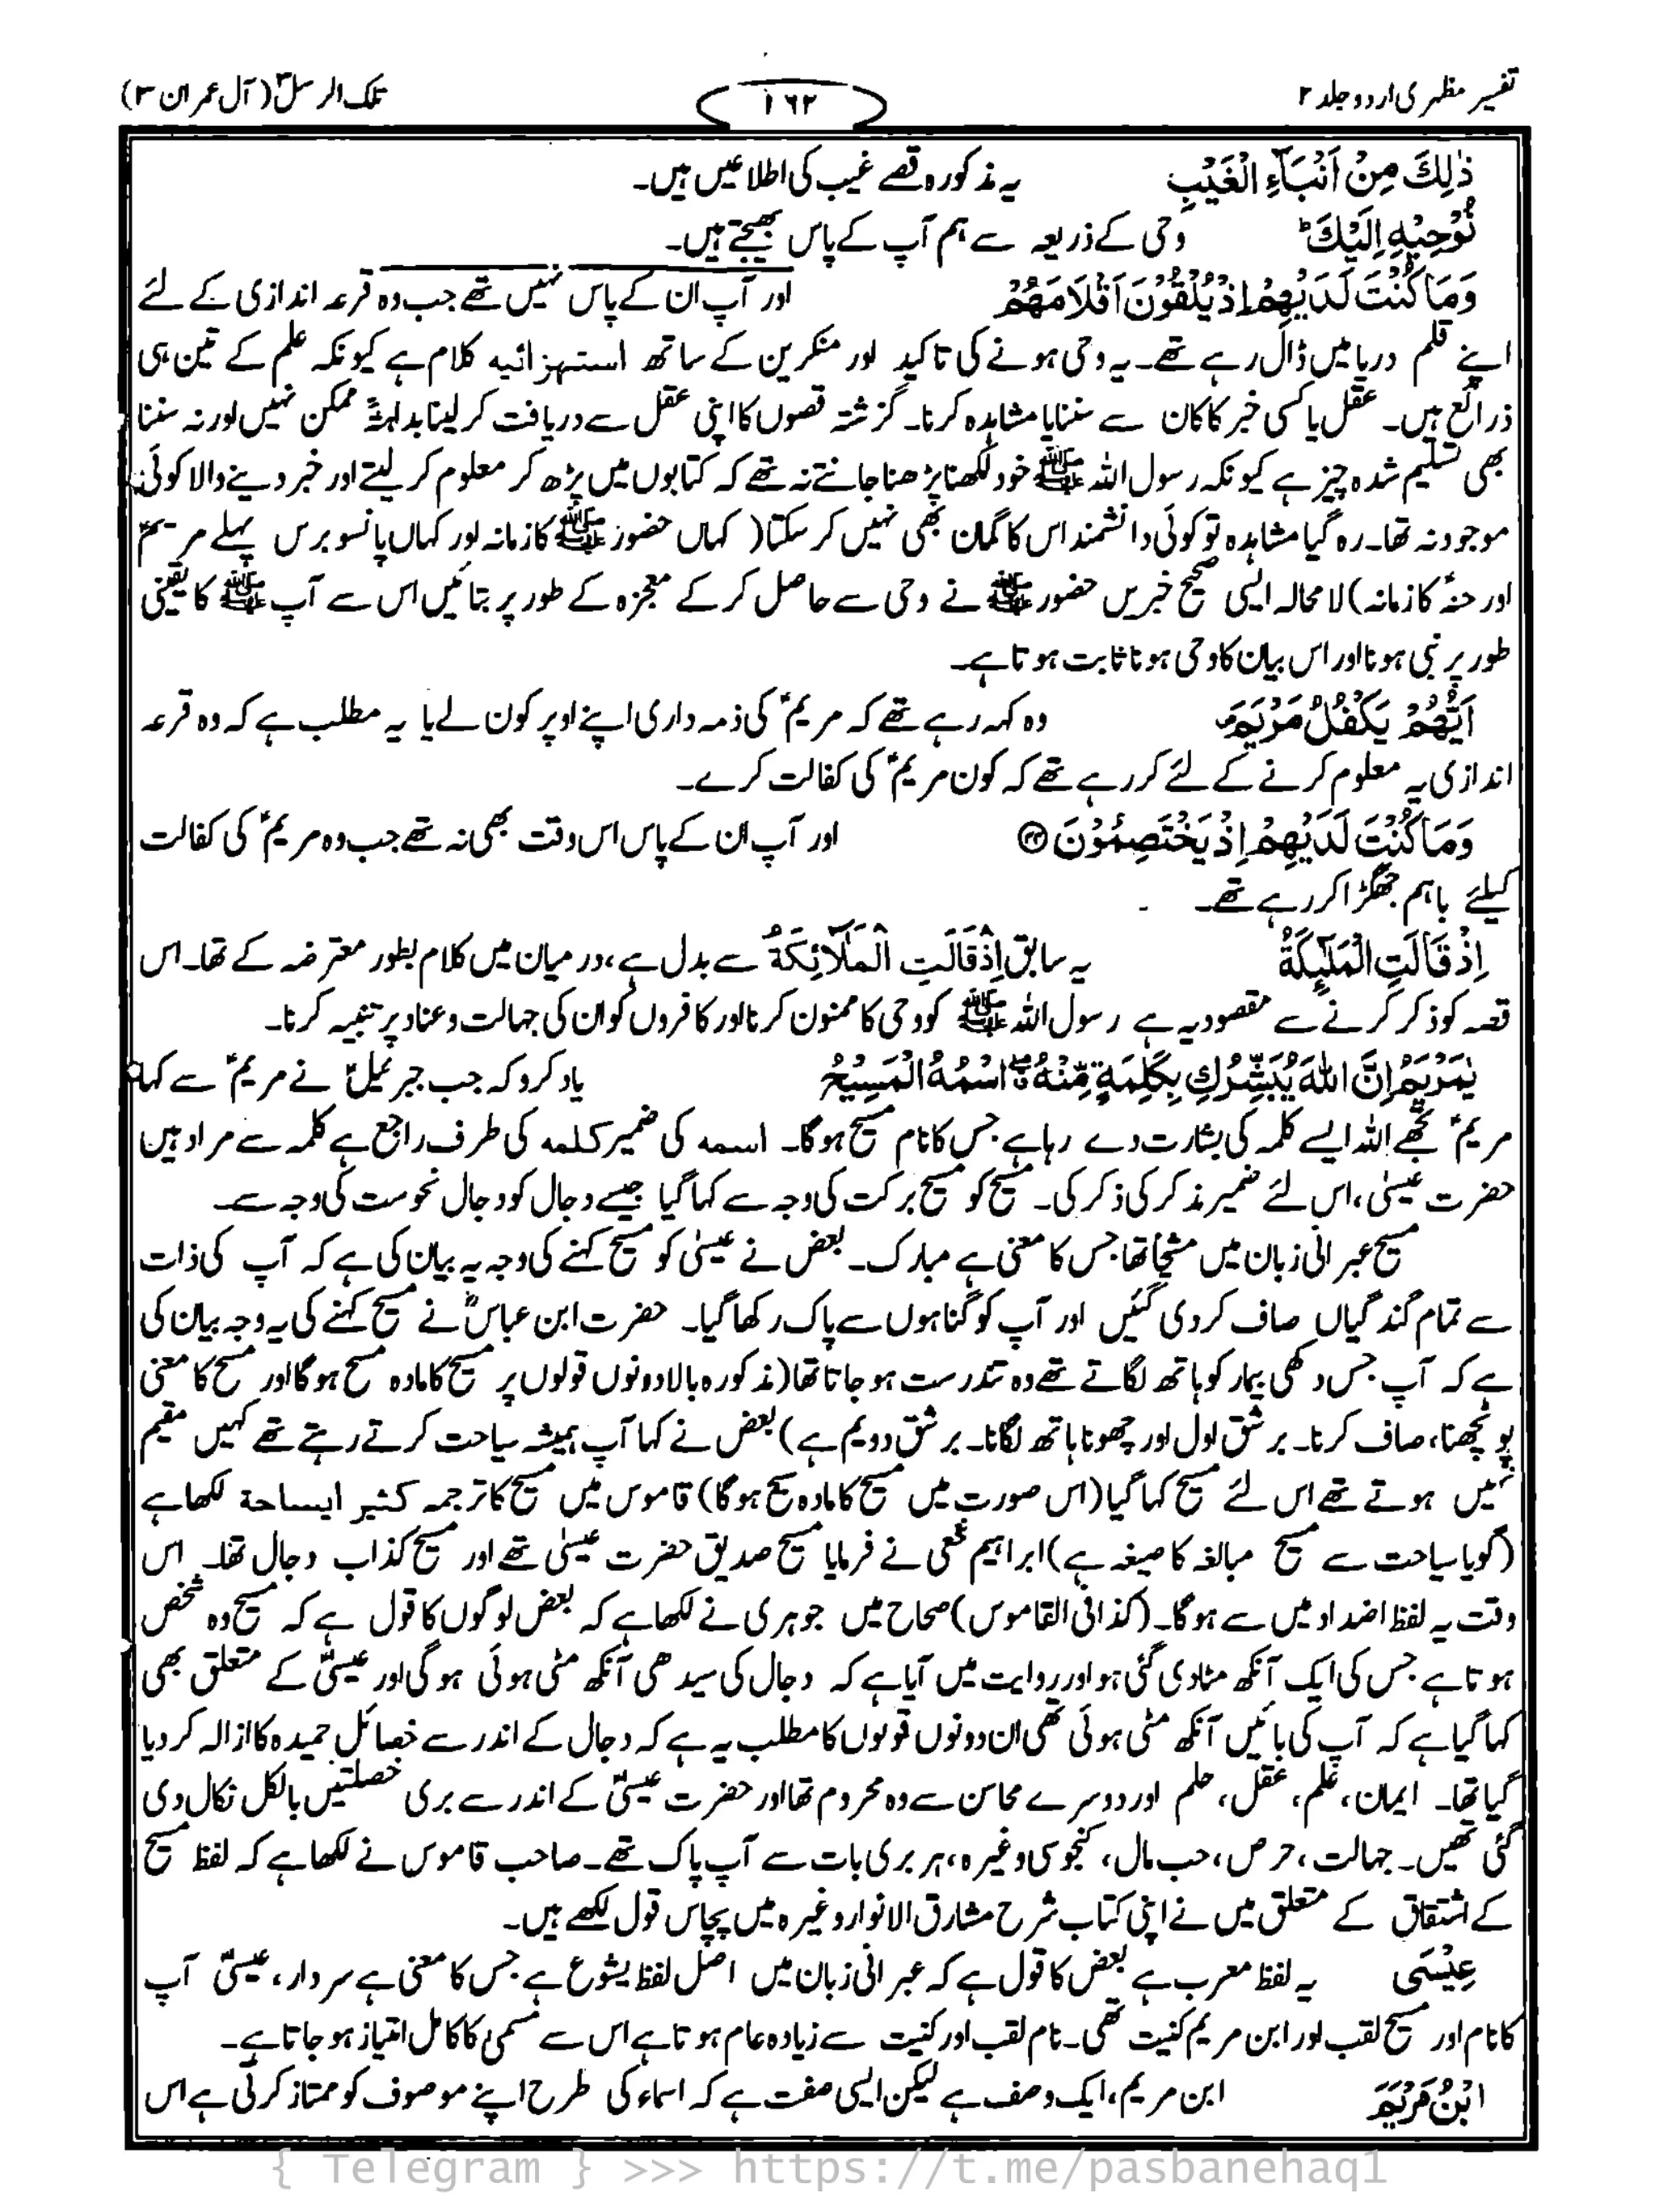 تفسیر مظہری اردو جلد ۲
۱۶۲
تلک الرسل ۳ (آل عمران ۳)
ذٰلِكَ مِنْ اَنْۢبَآءِ الْغَيْبِ یہ مذکورہ قصے غیب کی اطلاعیں ہیں۔
نُوْحِيْهِ اِلَيْكَ ؕ وحی کے ذریعہ سے ہم آپ کے پاس بھیجتے ہیں۔
وَمَا كُنْتَ لَدَيْهِمْ اِذْ يُلْقُوْنَ اَقْلَامَهُمْ اور آپ ان کے پاس نہیں تھے جب وہ قرعہ اندازی کے لئے
اپنے قلم دریا میں ڈال رہے تھے۔ یہ وحی ہونے کی تاکید اور منکرین کے ساتھ استہزائیہ کلام ہے کیونکہ علم کے تین ہی
ذرائع ہیں۔ عقل یا کسی خبر کا کان سے سننا یا مشاہدہ کرنا۔ گزشتہ قصوں کا اپنی عقل سے دریافت کر لینا بداہۃً ممکن نہیں اور نہ سننا
بھی تسلیم شدہ چیز ہے کیونکہ رسول اللہ ﷺ خود لکھنا پڑھنا جانتے نہ تھے کہ کتابوں میں پڑھ کر معلوم کر لیتے اور خبر دینے والا کوئی
موجود نہ تھا۔ رہ گیا مشاہدہ تو کوئی دانشمند اس کا گمان بھی نہیں کر سکتا (کہاں حضور ﷺ کا زمانہ اور کہاں پانسو برس پہلے مریمؑ
اور حنہؑ کا زمانہ) لا محالہ ایسی صحیح خبریں حضور ﷺ نے وحی سے حاصل کر کے معجزہ کے طور پر بتائیں اس سے آپ ﷺ کا یقینی
طور پر نبی ہونا اور اس بیان کا وحی ہونا ثابت ہوتا ہے۔
اَيُّهُمْ يَكْفُلُ مَرْيَمَ وہ کہہ رہے تھے کہ مریمؑ کی ذمہ داری اپنے اوپر کون لے یا یہ مطلب ہے کہ وہ قرعہ
اندازی یہ معلوم کرنے کے لئے کر رہے تھے کہ کون مریمؑ کی کفالت کرے۔
وَمَا كُنْتَ لَدَيْهِمْ اِذْ يَخْتَصِمُوْنَ ۴۴ اور آپ ان کے پاس اس وقت بھی نہ تھے جب وہ مریمؑ کی کفالت
کیلئے باہم جھگڑا کر رہے تھے۔
اِذْ قَالَتِ الْمَلٰٓئِكَةُ یہ سابق اِذْ قَالَتِ الْمَلَآئِكَةُ سے بدل ہے، درمیان میں کلام بطور معترضہ کے تھا۔ اس
قصہ کو ذکر کرنے سے مقصود یہ ہے رسول اللہ ﷺ کو وحی کا ممنون کرنا اور کافروں کو ان کی جہالت و عناد پر تنبیہ کرنا۔
يٰمَرْيَمُ اِنَّ اللّٰهَ يُبَشِّرُكِ بِكَلِمَةٍ مِّنْهُ ۖ اسْمُهُ الْمَسِيْحُ یاد کرو کہ جب جبرئیلؑ نے مریمؑ سے کہا
مریمؑ تجھے اللہ ایسے کلمہ کی بشارت دے رہا ہے جس کا نام مسیح ہوگا۔ اسمہ کی ضمیر کلمہ کی طرف راجع ہے کلمہ سے مراد ہیں
حضرت عیسیٰ، اس لئے ضمیر مذکر کی ذکر کی۔ مسیح کو مسیح برکت کی وجہ سے کہا گیا جیسے دجال کو دجال نحوست کی وجہ سے۔
مسیح عبرانی زبان میں مشیحا تھا جس کا معنی ہے مبارک۔ بعض نے عیسیٰ کو مسیح کہنے کی وجہ یہ بیان کی ہے کہ آپ کی ذات
سے تمام گندگیاں صاف کر دی گئیں اور آپ کو گناہوں سے پاک رکھا گیا۔ حضرت ابن عباسؓ نے مسیح کہنے کی یہ وجہ بیان کی
ہے کہ آپ جس دکھی بیمار کو ہاتھ لگاتے تھے وہ تندرست ہو جاتا تھا (مذکورہ بالا دونوں قولوں پر مسیح کا مادہ مسح ہوگا اور مسح کا معنی
پونچھنا، صاف کرنا۔ بر شق اول اور چھونا ہاتھ لگانا۔ بر شق دویم ہے) بعض نے کہا آپ ہمیشہ سیاحت کرتے رہتے تھے کہیں مقیم
نہیں ہوتے تھے اس لئے مسیح کہا گیا (اس صورت میں مسیح کا مادہ سیح ہوگا) قاموس میں مسیح کا ترجمہ کثیر ایساحۃ لکھا ہے
(گویا سیاحت سے مسیح مبالغہ کا صیغہ ہے) ابراہیم نخعی نے فرمایا مسیح صدیق حضرت عیسیٰ تھے اور مسیح کذاب دجال تھا۔ اس
وقت یہ لفظ اضداد میں سے ہوگا۔ (کذا فی القاموس) صحاح میں جوہری نے لکھا ہے کہ بعض لوگوں کا قول ہے کہ مسیح وہ شخص
ہوتا ہے جس کی ایک آنکھ مٹا دی گئی ہو اور روایت میں آیا ہے کہ دجال کی سیدھی آنکھ مٹی ہوئی ہوگی اور عیسیٰؑ کے متعلق بھی
کہا گیا ہے کہ آپ کی بائیں آنکھ مٹی ہوئی تھی ان دونوں قولوں کا مطلب یہ ہے کہ دجال کے اندر سے خصائل حمیدہ کا ازالہ کر دیا
گیا تھا۔ ایمان، علم، عقل، حلم اور دوسرے محاسن سے وہ محروم تھا اور حضرت عیسیٰؑ کے اندر سے بری خصلتیں بالکل نکال دی
گئی تھیں۔ جہالت، حرص، حب مال، کنجوسی وغیرہ، ہر بری بات سے آپ پاک تھے۔ صاحب قاموس نے لکھا ہے کہ لفظ مسیح
کے اشتقاق کے متعلق میں نے اپنی کتاب شرح مشارق الانوار وغیرہ میں پچاس قول لکھے ہیں۔
عِيْسَى یہ لفظ معرب ہے بعض کا قول ہے کہ عبرانی زبان میں اصل لفظ یشوع ہے جس کا معنی ہے سردار، عیسیٰؑ آپ
کا نام اور مسیح لقب اور ابن مریم کنیت تھی۔ نام لقب اور کنیت سے زیادہ عام ہوتا ہے اس سے مسمیٰ کا کامل امتیاز ہو جاتا ہے۔
ابْنُ مَرْيَمَ ابن مریم، ایک وصف ہے لیکن ایسی صفت ہے کہ اسماء کی طرح اپنے موصوف کو ممتاز کرتی ہے اس
{ Telegram } >>> https://t.me/pasbanehaq1